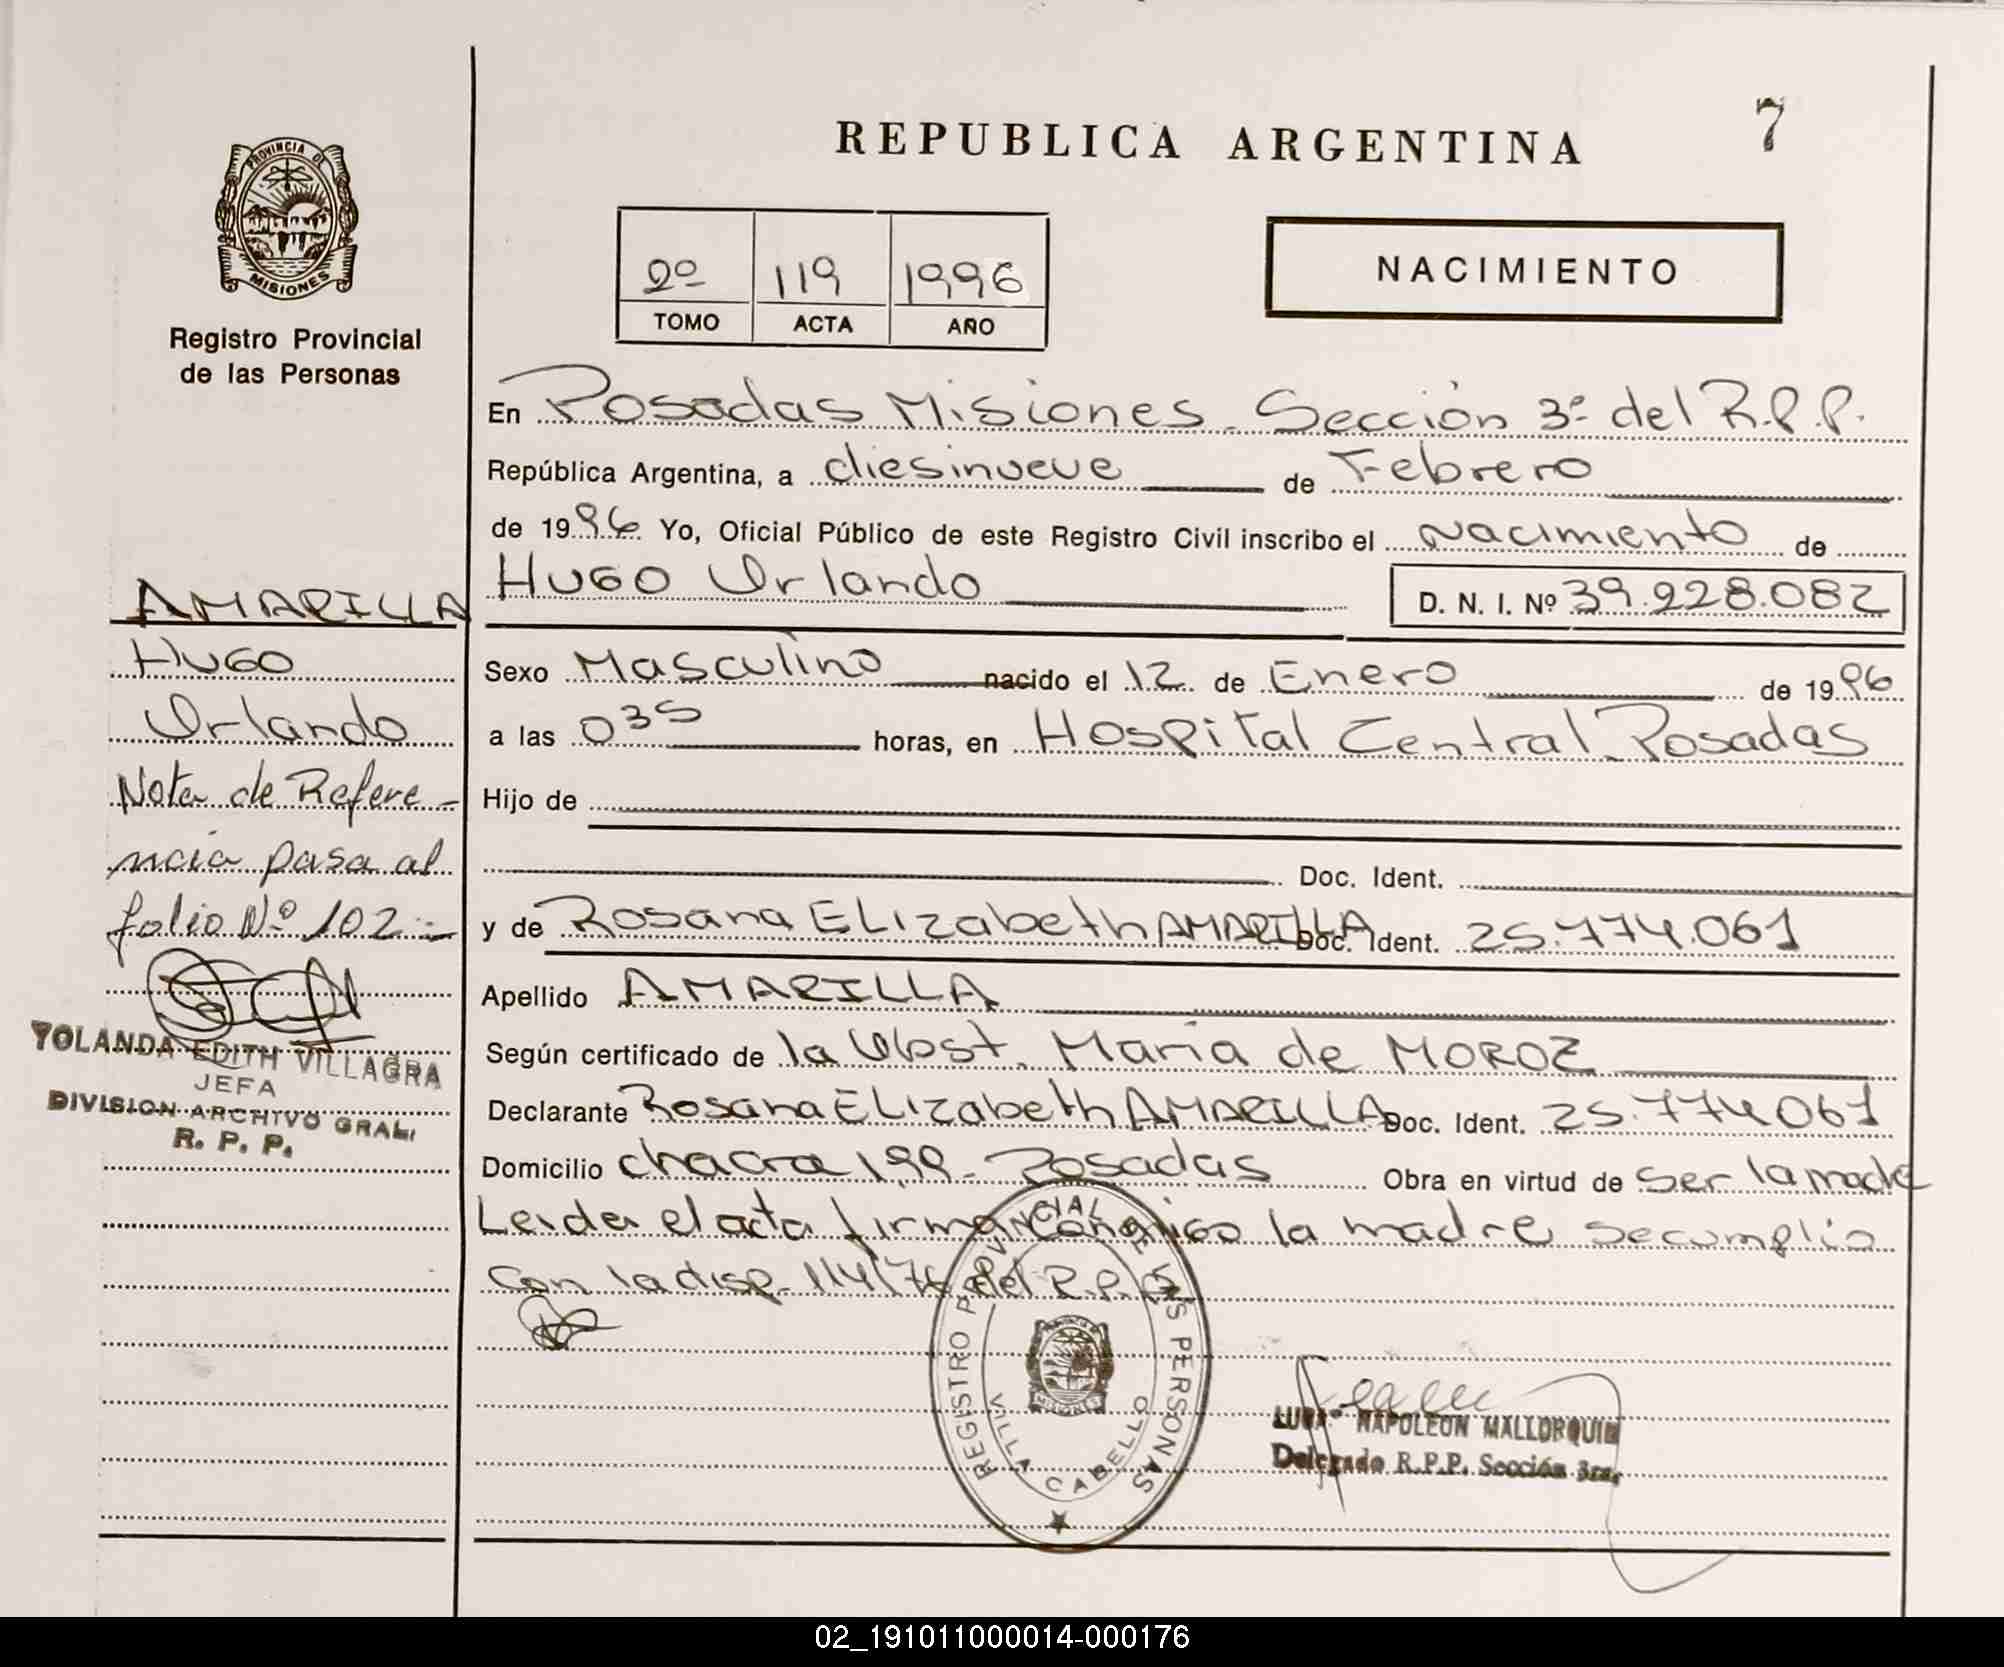 REPUBLICA ARGENTINA
7
PROVINCIA DE
MISIONES
Registro Provincial
de las Personas
2º 119 1996
TOMO ACTA AÑO
NACIMIENTO
En Posadas Misiones. Sección 3ª del R.P.P.
República Argentina, a diesinueve de Febrero
de 1996 Yo, Oficial Público de este Registro Civil inscribo el Nacimiento de
Hugo Orlando D. N. I. Nº 39.228.082
Sexo Masculino nacido el 12 de Enero de 1996
a las 035 horas, en Hospital Central Posadas
Hijo de
Doc. Ident.
y de Rosana ELizabeth AMARILLA Doc. Ident. 25.774.061
Apellido AMARILLA
Según certificado de la Obst. Maria de MOROZ
Declarante Rosana ELizabeth AMARILLA Doc. Ident. 25.774061
Domicilio chacra 199 - Posadas Obra en virtud de ser la madre
Leida el acta firma conmigo la madre se cumplio
con la disp. 114/76 del R.P.P.
AMARILLA
Hugo
Orlando
Nota de Refere-
ncia pasa al
folio Nº 102 -
YOLANDA EDITH VILLAGRA
JEFA
DIVISION ARCHIVO GRAL.
R. P. P.
REGISTRO PROVINCIAL DE LAS PERSONAS
VILLA CABELLO
NAPOLEON MALLORQUIN
Delegado R.P.P. Sección 3ra.
02_191011000014-000176